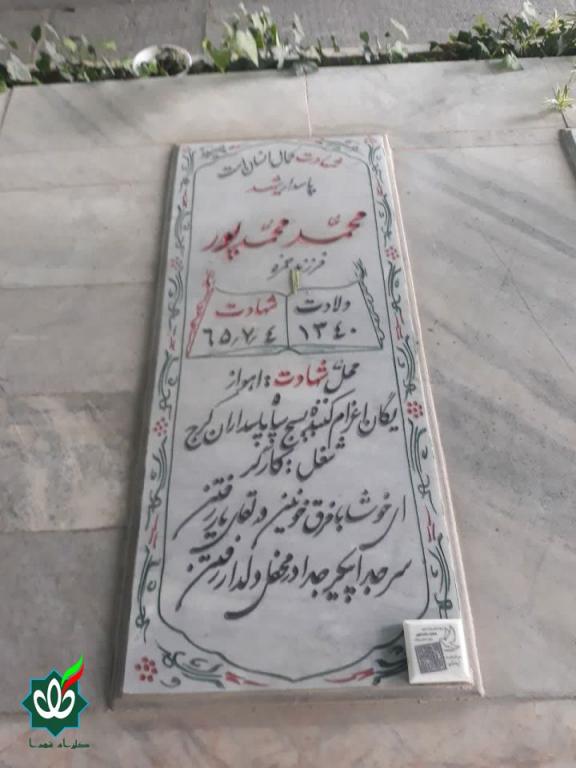 شهادت کمال انسان است
پاسدار شهید
محمد محمدپور
فرزند حمزه
ولادت شهادت
۱۳۴۰ ۶۵٫۷٫۴
محل شهادت : اهواز
یگان اعزام کننده بسیج سپاه پاسداران کرج
شغل : کارگر
ای خوشا با فرق خونین در لقای یار رفتن
سر جدا پیکر جدا در محفل دلدار رفتن
گلزار شهدا